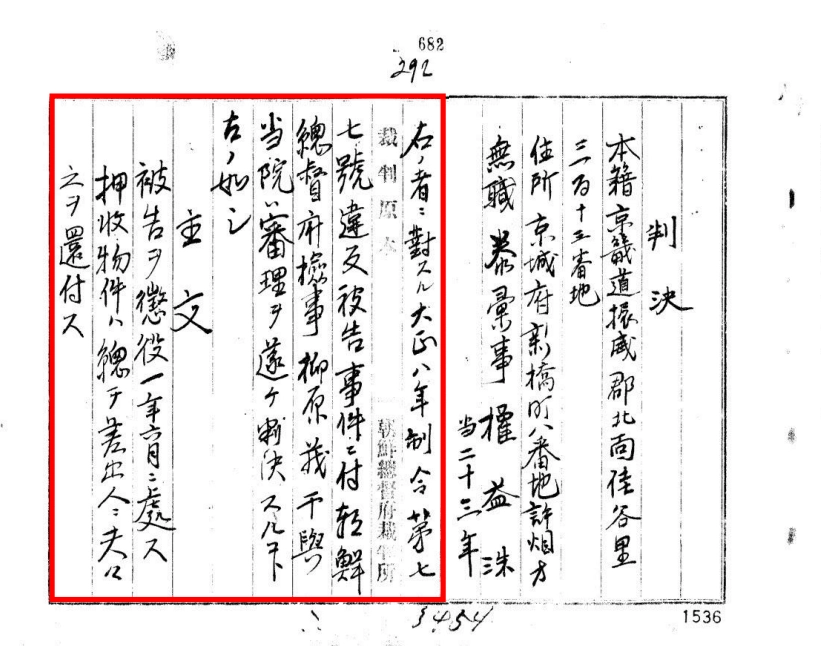 682
292
判決
本籍京畿道振威郡北面佳谷里
三百十三番地
住所京城府新橋町八番地許烟方
無職 泰彙事 權益洙
当二十三年
右ノ者ニ對スル大正八年制令第七
裁判原本
朝鮮總督府裁判所
七號違反被告事件ニ付朝鮮
總督府檢事柳原茂干與
当院ハ審理ヲ遂ケ判決スルコト
左ノ如シ
主文
被告ヲ懲役一年六月ニ處ス
押收物件ハ總テ差出人ニ夫々
之ヲ還付ス
3454
1536